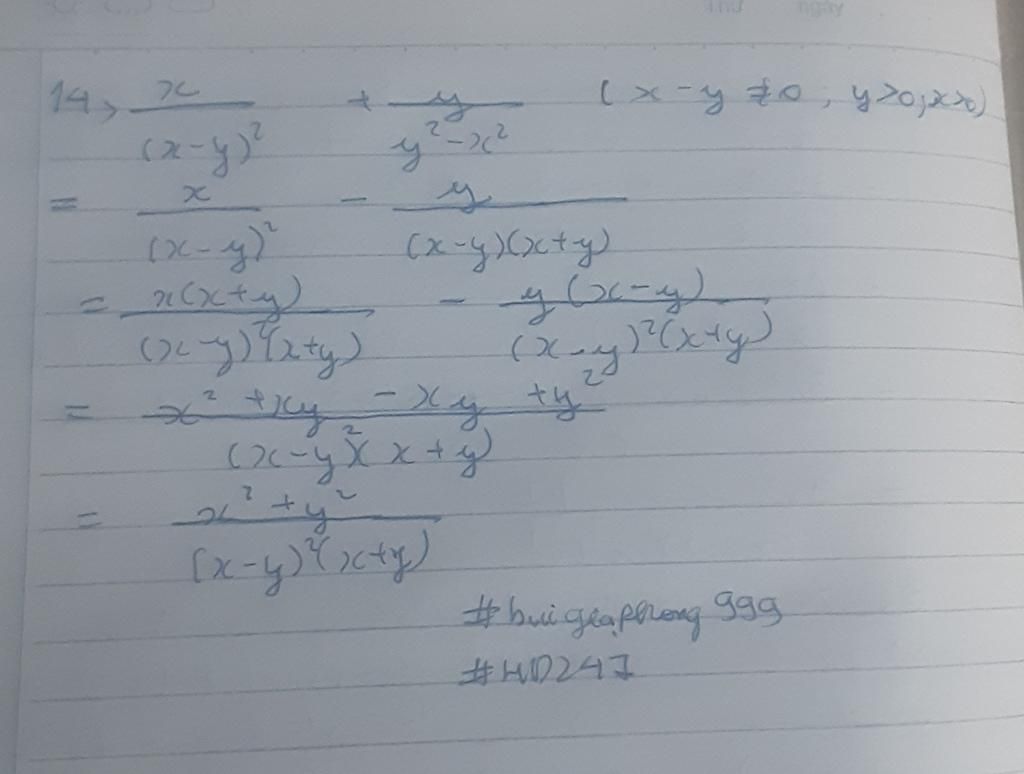 Thứ ngày
14, x/(x-y)² + y/(y²-x²) (x-y≠0, y>0; x>0)
= x/(x-y)² - y/((x-y)(x+y))
= x(x+y)/((x-y)²(x+y)) - y(x-y)/((x-y)²(x+y))
= (x²+xy-xy+y²)/((x-y)²(x+y))
= (x²+y²)/((x-y)²(x+y))
#buigiaphong999
#HD247